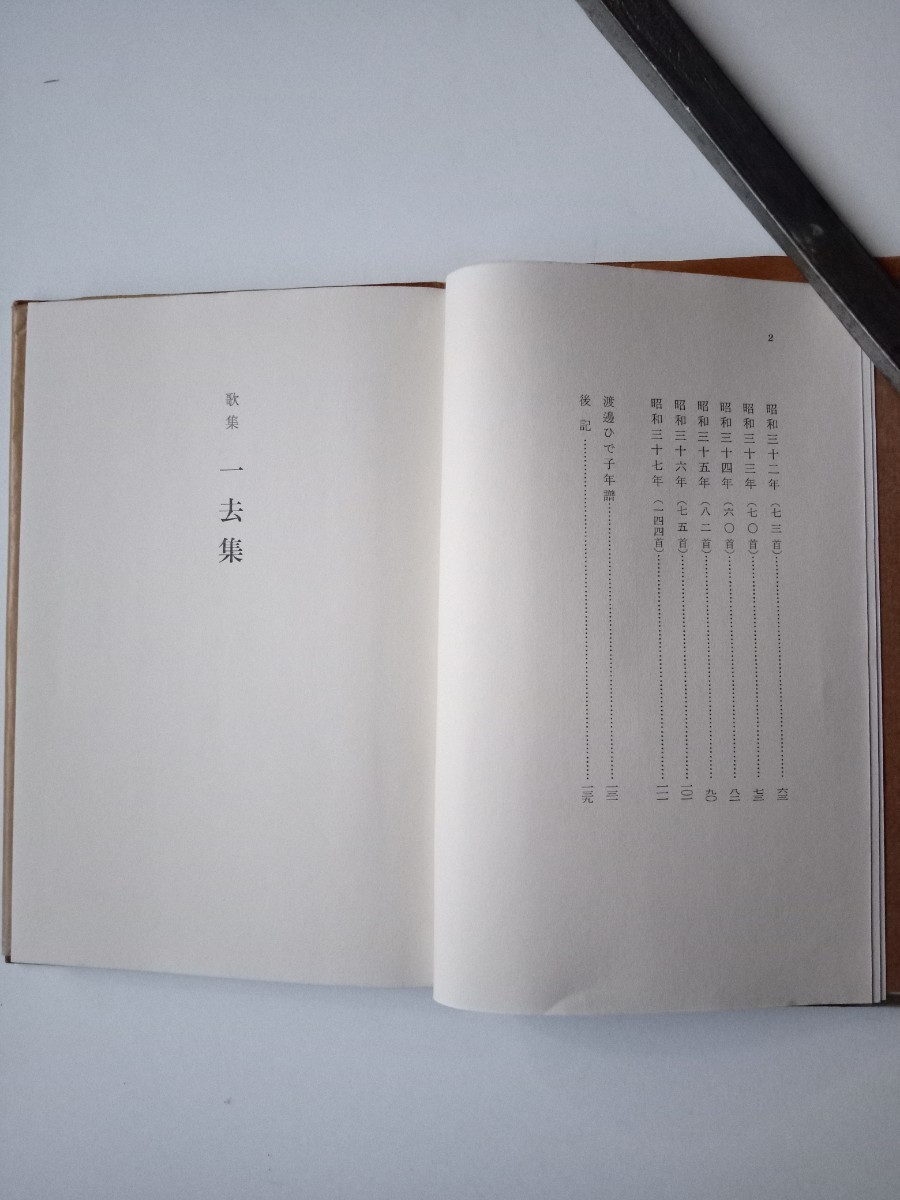 2
昭和三十二年（七三首）……六三
昭和三十三年（七〇首）……七三
昭和三十四年（六〇首）……八二
昭和三十五年（八二首）……九〇
昭和三十六年（七五首）……一〇一
昭和三十七年（一四四首）……一一一
渡邊ひで子年譜……一三一
後記……一三九
歌集 一去集